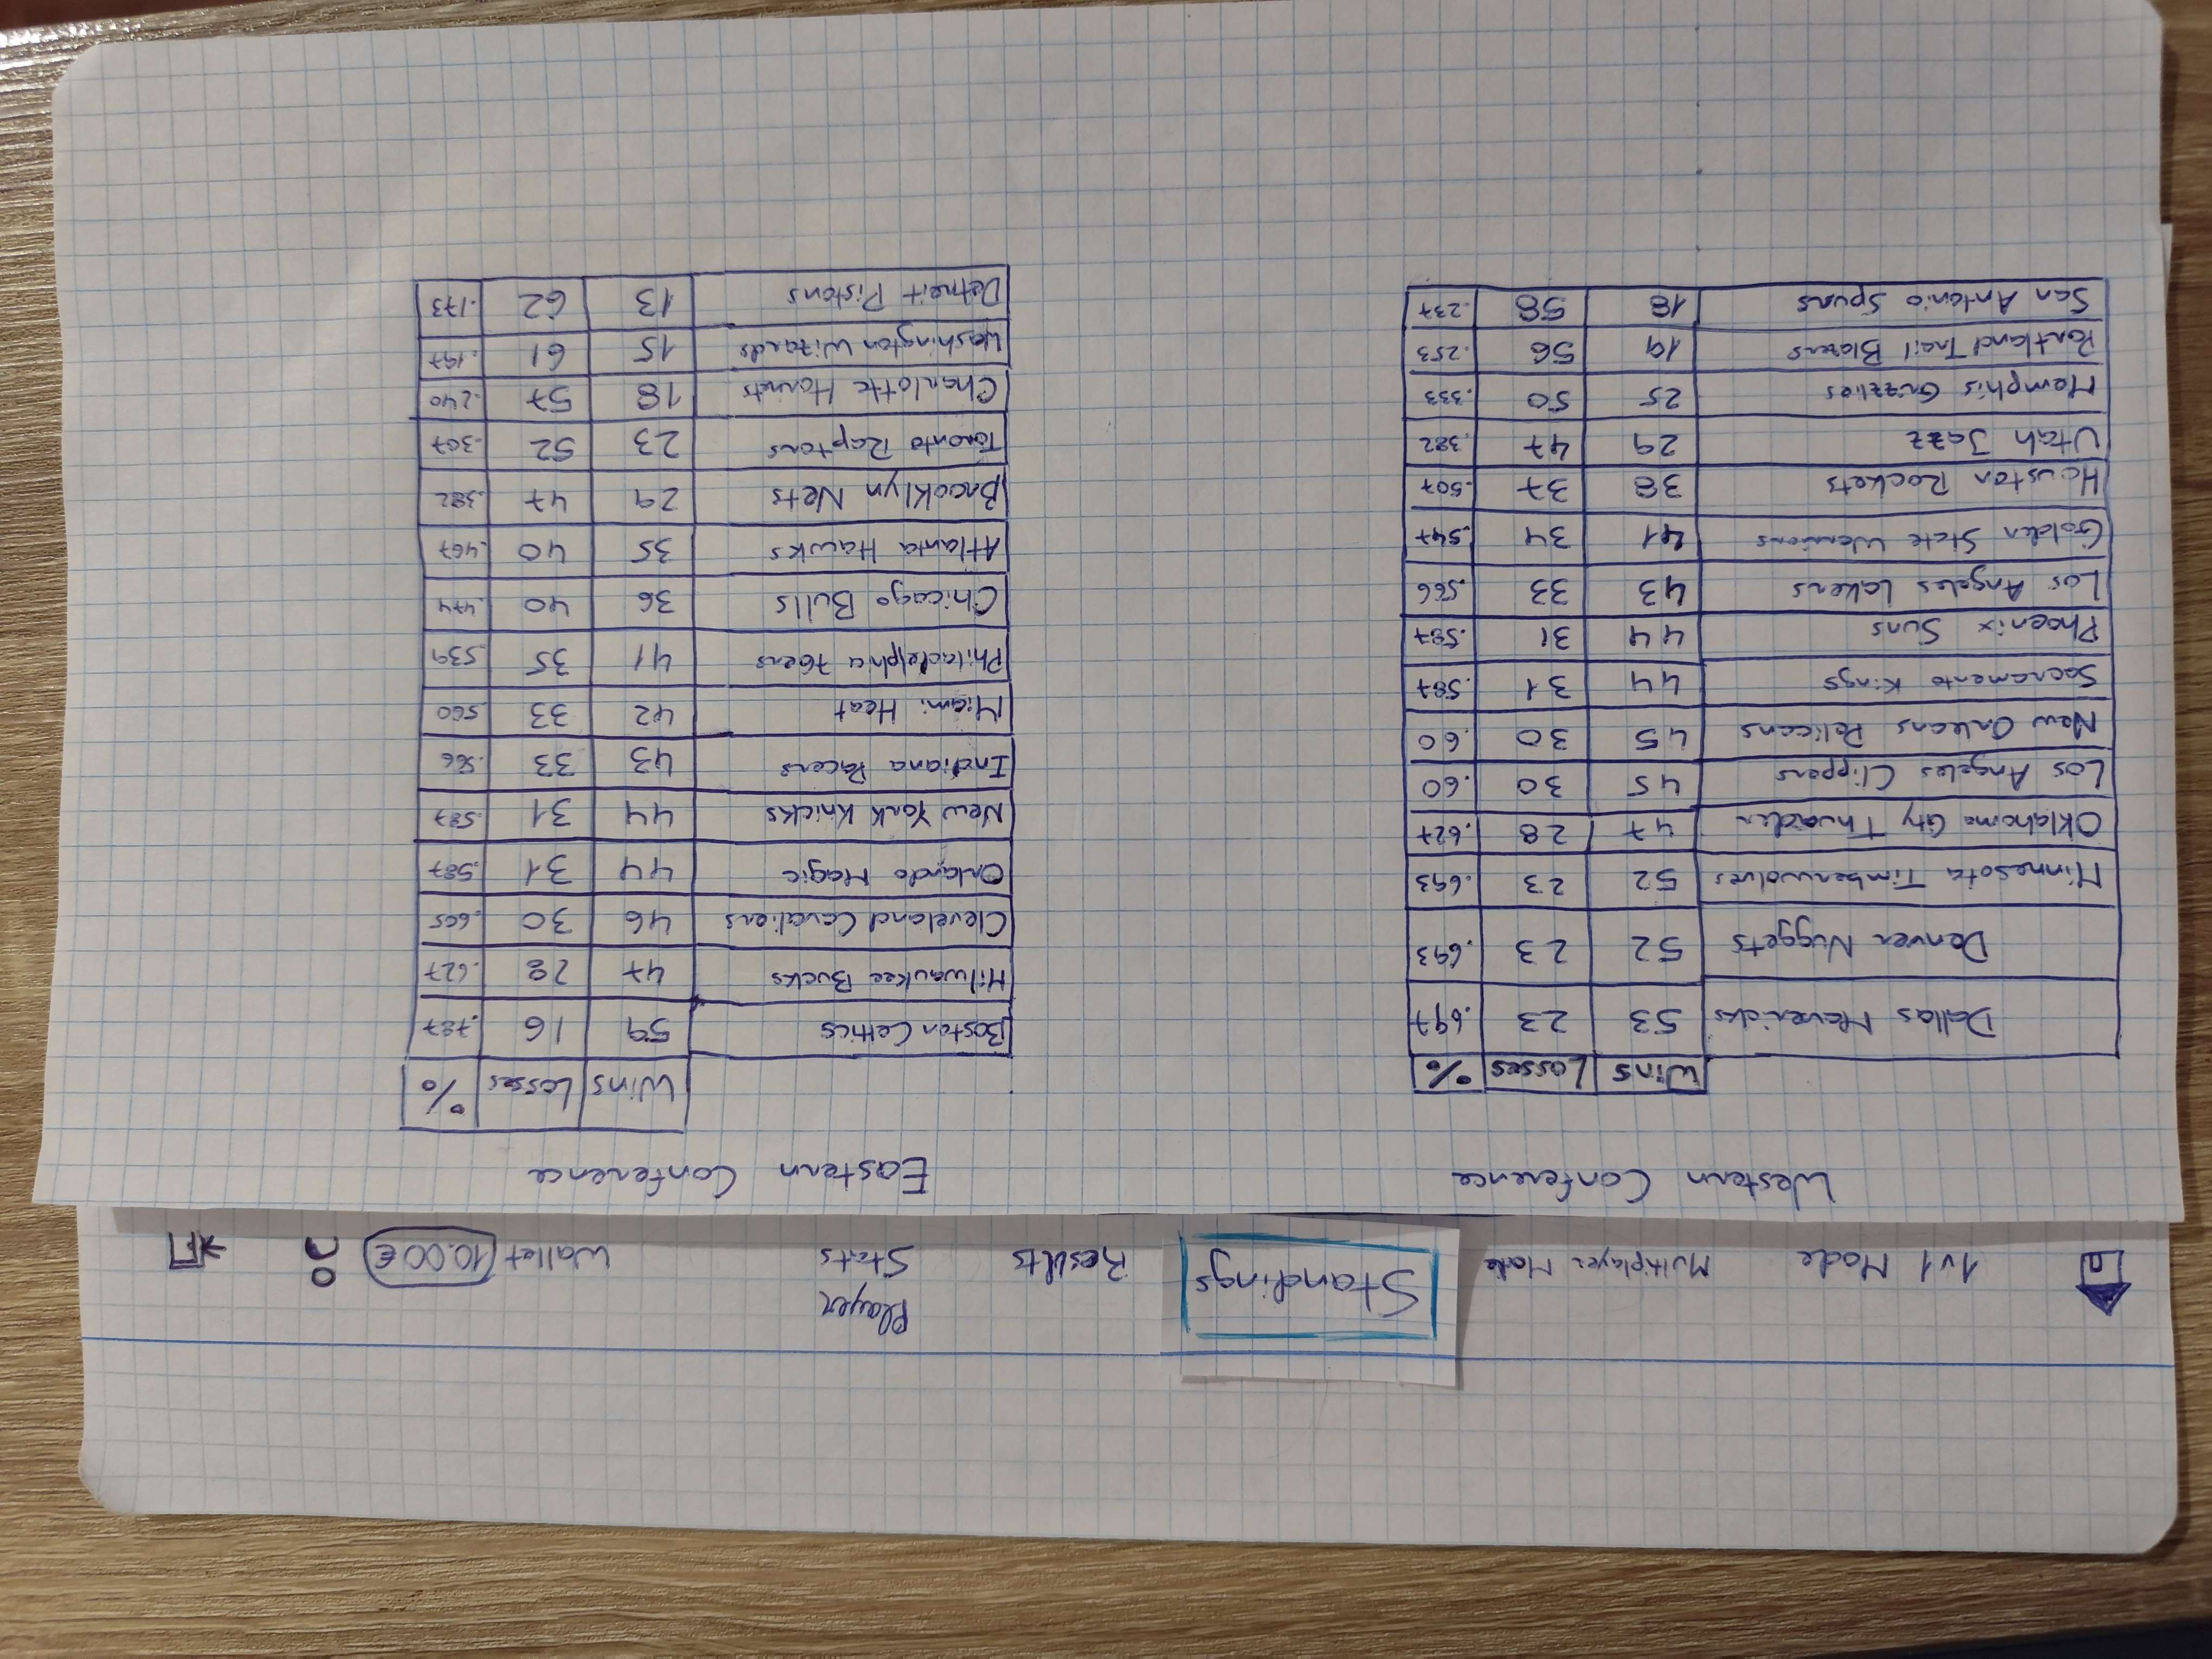 1v1 Mode Multiplayer Mode Standings Results Player Stats Wallet 10.00€
Western Conference
Wins Losses %
Dallas Mavericks 53 23 .697
Denver Nuggets 52 23 .693
Minnesota Timberwolves 52 23 .693
Oklahoma City Thunder 47 28 .627
Los Angeles Clippers 45 30 .60
New Orleans Pelicans 45 30 .60
Sacramento Kings 44 31 .587
Phoenix Suns 44 31 .587
Los Angeles Lakers 43 33 .566
Golden State Warriors 41 34 .547
Houston Rockets 38 37 .507
Utah Jazz 29 47 .382
Memphis Grizzlies 25 50 .333
Portland Trail Blazers 19 56 .253
San Antonio Spurs 18 58 .237
Eastern Conference
Wins Losses %
Boston Celtics 59 16 .787
Milwaukee Bucks 47 28 .627
Cleveland Cavaliers 46 30 .605
Orlando Magic 44 31 .587
New York Knicks 44 31 .587
Indiana Pacers 43 33 .566
Miami Heat 42 33 .560
Philadelphia 76ers 41 35 .539
Chicago Bulls 36 40 .474
Atlanta Hawks 35 40 .467
Brooklyn Nets 29 47 .382
Toronto Raptors 23 52 .307
Charlotte Hornets 18 57 .240
Washington Wizards 15 61 .197
Detroit Pistons 13 62 .173